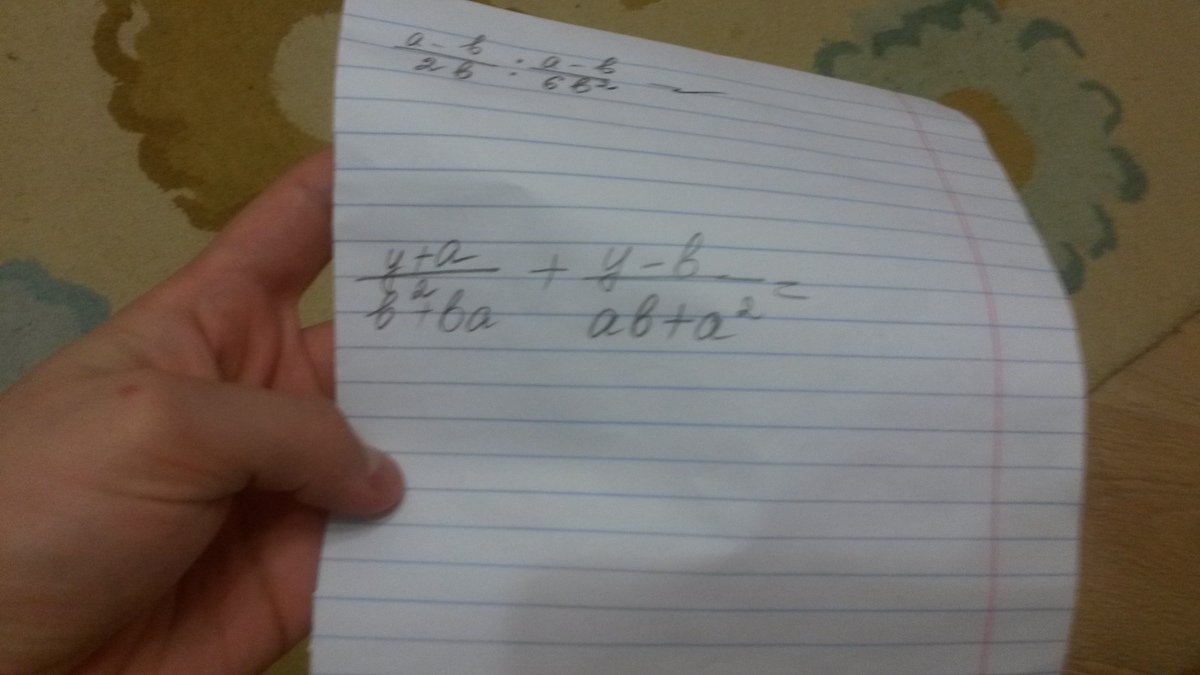 \frac{a-b}{2b} : \frac{a-b}{6b^2} =
\frac{y+a}{b^2+ba} + \frac{y-b}{ab+a^2} =